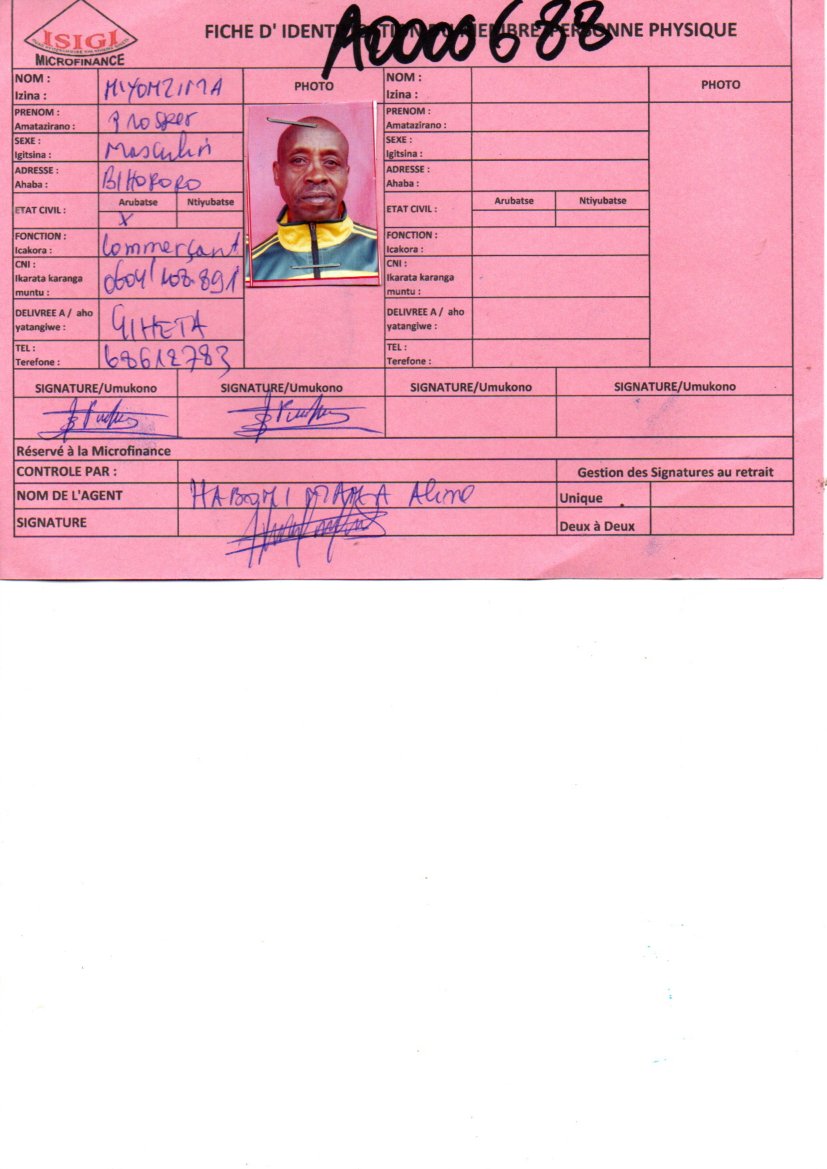 ISIGI
MICROFINANCE
FICHE D' IDENTIFICATION DU MEMBRE PERSONNE PHYSIQUE
A0000688
NOM :
Izina :
PHOTO
NOM :
Izina :
PHOTO
PRENOM :
Amatazirano :
Prosper
PRENOM :
Amatazirano :
SEXE :
Igitsina :
Masculin
SEXE :
Igitsina :
ADRESSE :
Ahaba :
BIHORORO
ADRESSE :
Ahaba :
ETAT CIVIL :
Arubatse
Ntiyubatse
X
ETAT CIVIL :
Arubatse
Ntiyubatse
FONCTION :
Icakora :
Commerçant
FONCTION :
Icakora :
CNI :
Ikarata karanga
muntu :
CNI :
Ikarata karanga
muntu :
DELIVREE A / aho
yatangiwe :
GIHETA
DELIVREE A / aho
yatangiwe :
TEL :
Terefone :
68612783
TEL :
Terefone :
SIGNATURE/Umukono
SIGNATURE/Umukono
SIGNATURE/Umukono
SIGNATURE/Umukono
Réservé à la Microfinance
CONTROLE PAR :
Gestion des Signatures au retrait
NOM DE L'AGENT
Aline
Unique
SIGNATURE
Deux à Deux